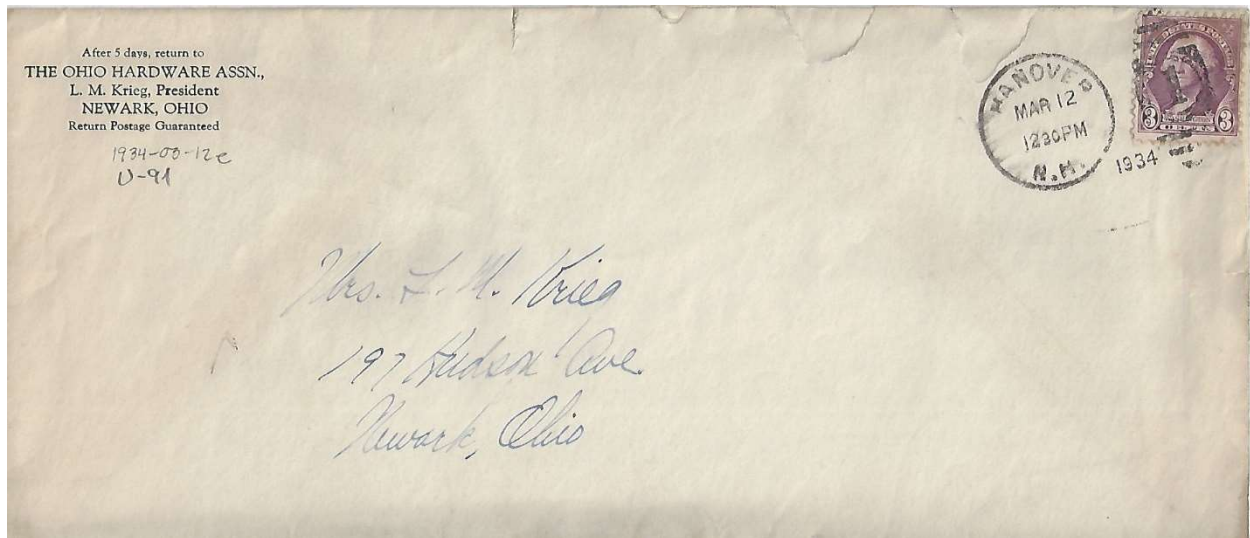 After 5 days, return to
THE OHIO HARDWARE ASSN.,
L. M. Krieg, President
NEWARK, OHIO
Return Postage Guaranteed
1934-03-12e
U-91
HANOVER
MAR 12
1230PM
N.H.
1934
UNITED STATES POSTAGE
3 3
Mrs. L. M. Krieg
197 Hudson Ave.
Newark, Ohio